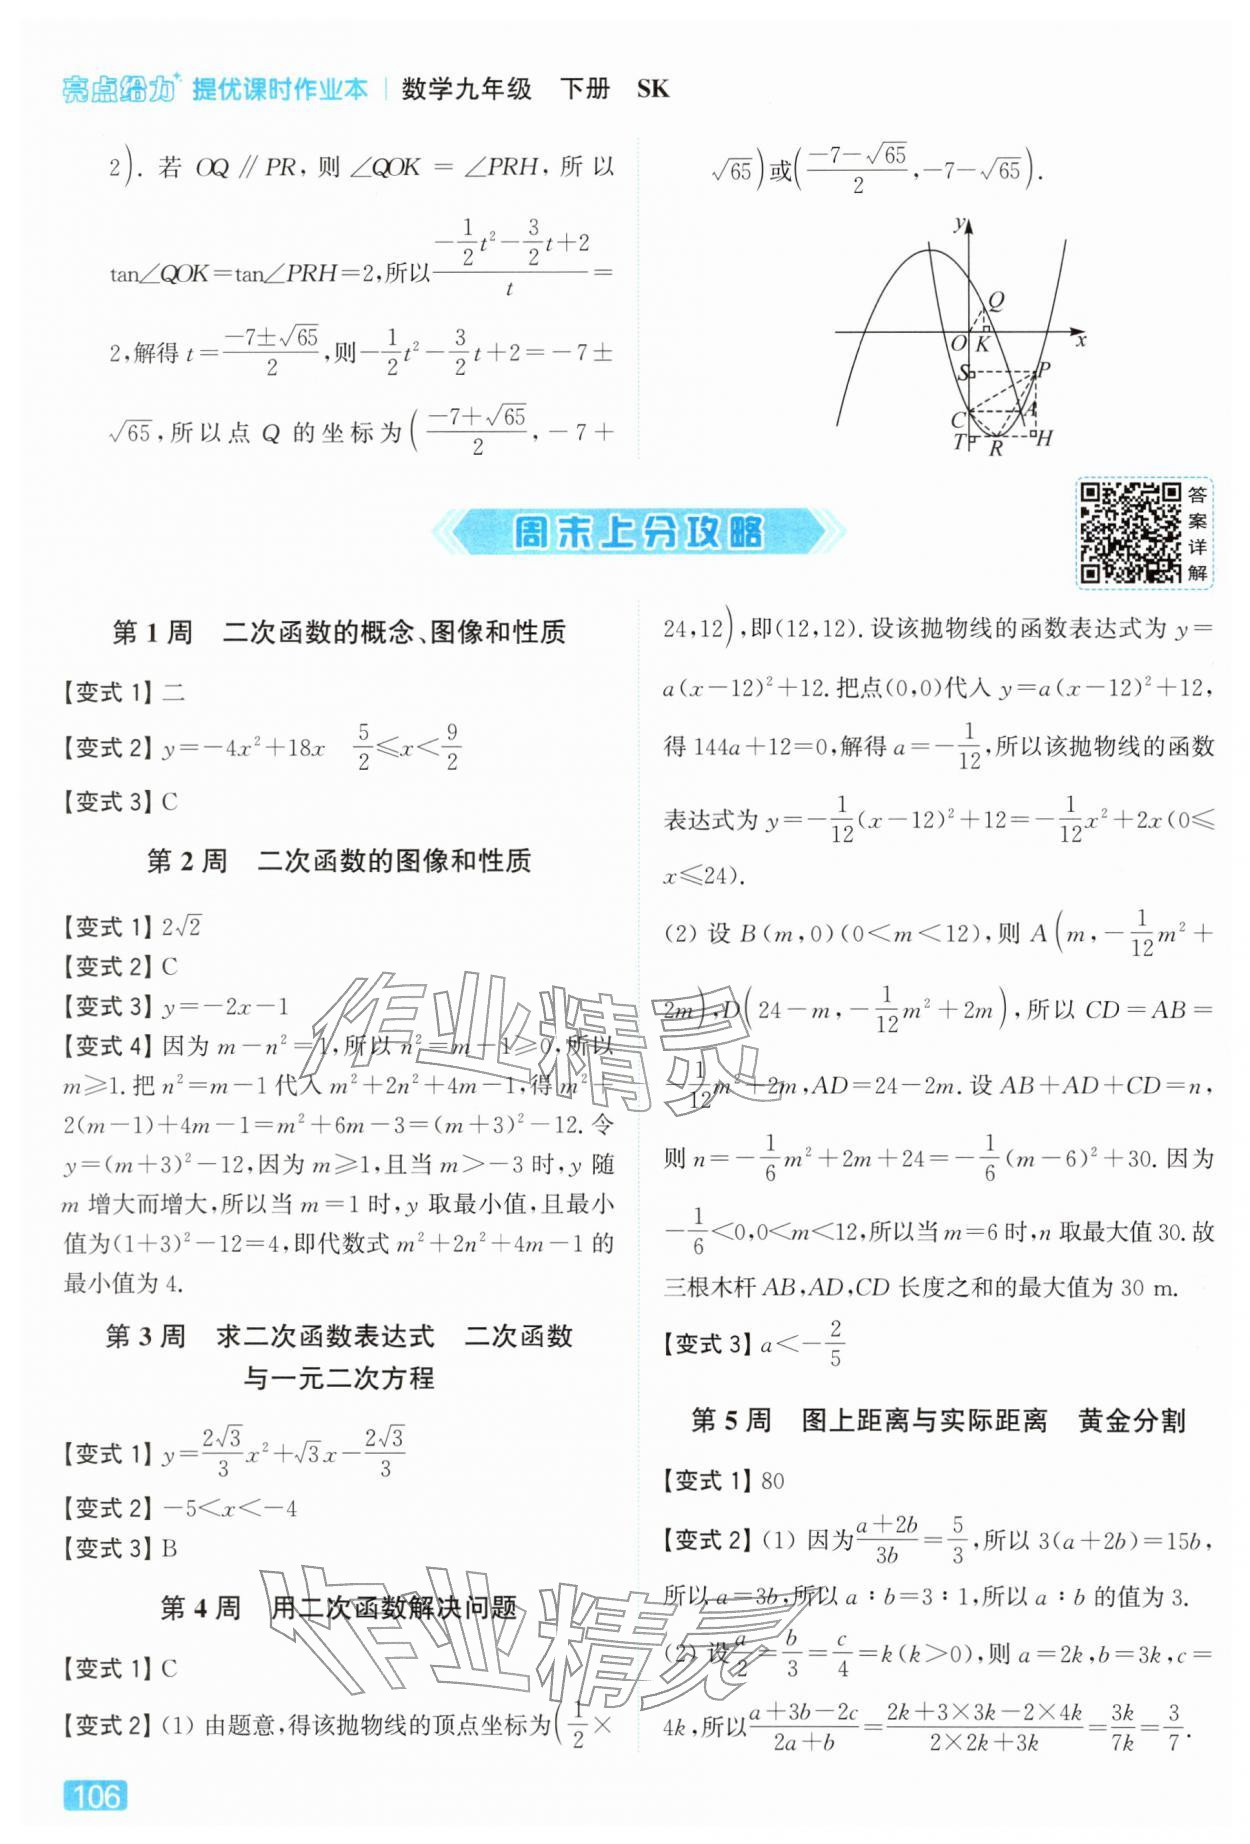 亮点给力 提优课时作业本 | 数学九年级 下册 SK
2). 若 OQ∥PR, 则 ∠QOK=∠PRH, 所以
tan∠QOK=tan∠PRH=2,所以(-1/2t²-3/2t+2)/t=
2,解得 t=(-7±√65)/2,则-1/2t²-3/2t+2=-7±
√65,所以点 Q 的坐标为((-7+√65)/2,-7+
√65)或((-7-√65)/2,-7-√65).
y
Q
O K x
S P
C A
T R H
周末上分攻略
答案详解
第 1 周 二次函数的概念、图像和性质
【变式 1】二
【变式 2】y=-4x²+18x 5/2≤x<9/2
【变式 3】C
第 2 周 二次函数的图像和性质
【变式 1】2√2
【变式 2】C
【变式 3】y=-2x-1
【变式 4】因为 m-n²=1,所以 n²=m-1≥0,所以
m≥1.把 n²=m-1代入 m²+2n²+4m-1,得 m²+
2(m-1)+4m-1=m²+6m-3=(m+3)²-12.令
y=(m+3)²-12,因为 m≥1,且当 m>-3 时,y 随
m 增大而增大,所以当 m=1 时,y 取最小值,且最小
值为(1+3)²-12=4,即代数式 m²+2n²+4m-1 的
最小值为 4.
第 3 周 求二次函数表达式 二次函数
与一元二次方程
【变式 1】y=2√3/3x²+√3x-2√3/3
【变式 2】-5<x<-4
【变式 3】B
第 4 周 用二次函数解决问题
【变式 1】C
【变式 2】(1) 由题意,得该抛物线的顶点坐标为(1/2×
24,12),即(12,12).设该抛物线的函数表达式为 y=
a(x-12)²+12.把点(0,0)代入 y=a(x-12)²+12,
得 144a+12=0,解得 a=-1/12,所以该抛物线的函数
表达式为 y=-1/12(x-12)²+12=-1/12x²+2x(0≤
x≤24).
(2) 设 B(m,0)(0<m<12),则 A(m,-1/12m²+
2m),D(24-m,-1/12m²+2m),所以 CD=AB=
-1/12m²+2m,AD=24-2m.设 AB+AD+CD=n,
则 n=-1/6m²+2m+24=-1/6(m-6)²+30.因为
-1/6<0,0<m<12,所以当 m=6 时,n 取最大值 30.故
三根木杆 AB,AD,CD 长度之和的最大值为 30 m.
【变式 3】a<-2/5
第 5 周 图上距离与实际距离 黄金分割
【变式 1】80
【变式 2】(1) 因为(a+2b)/3b=5/3,所以 3(a+2b)=15b,
所以 a=3b,所以 a∶b=3∶1,所以 a∶b 的值为 3.
(2) 设a/2=b/3=c/4=k(k>0),则 a=2k,b=3k,c=
4k,所以(a+3b-2c)/(2a+b)=(2k+3×3k-2×4k)/(2×2k+3k)=3k/7k=3/7.
作业精灵
作业精灵
106